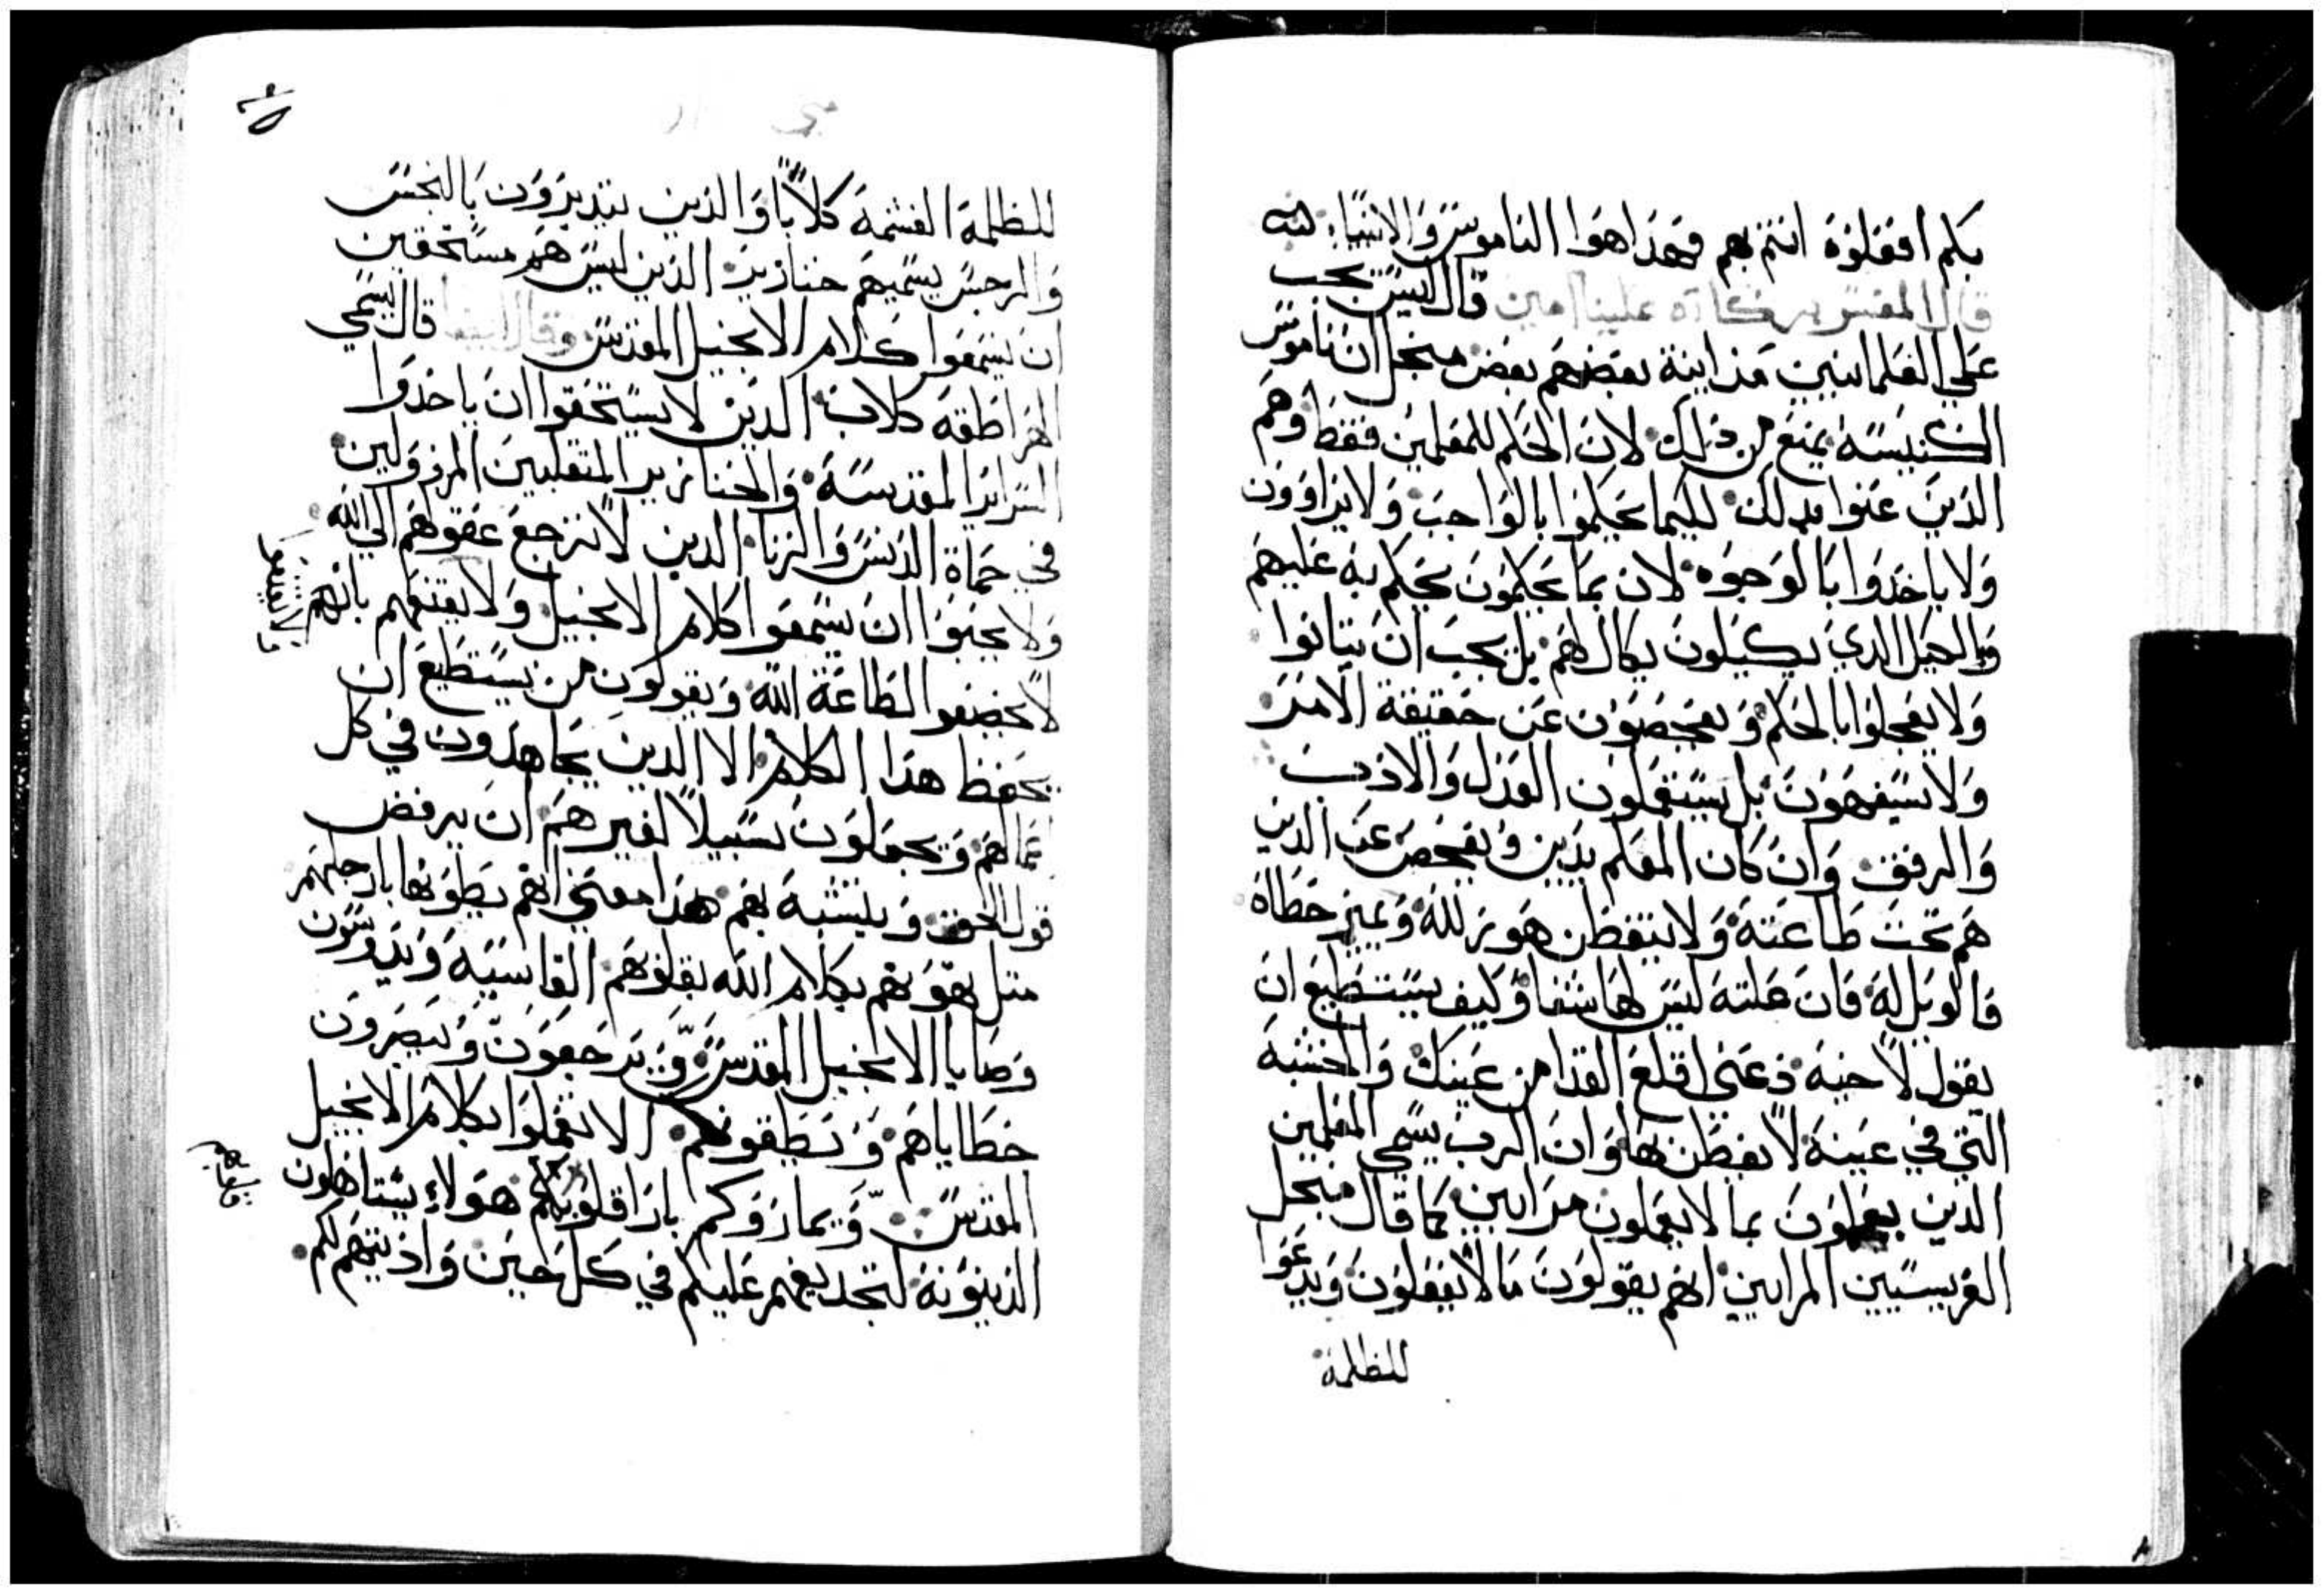 بكم افعلوه انتم بهم فهذا هوا الناموس والانبياء
قال المفسر بركاته علينا امين قال ليس يجب
علي العلمانيين مداينة بعضهم بعض منجل ان ناموس
الكنيسه يمنع من ذلك لان الحكم للمعلمين فقط وهم
الذين عنوا بذلك لكيما يحكموا بالواجب ولا يراوون
ولا ياخدوا بالوجوه لان بما يحكمون يحكم به عليهم
وبالكيل الدي يكيلون يكال لهم بل يجب ان يتانوا
ولا يعجلوا بالحكم ويفحصون عن حقيقة الامر
ولا يسفهون بل يستعملون العدل والادب
والرفق وان كان المعلم يدين ويفحص عن الدين
هم تحت طاعته ولا يتفطن هو بزلله ويميز خطاه
فالويل له فان علته ليس لها شفا وكيف يستطيع ان
يقول لاخيه دعني اقلع القدا من عينك والخشبه
التي في عينه لا يفطن بها وان الرب يسمي المعلمين
الدين يعلمون بما لا يعملون مرايين كما قال منجل
الفريسيين المرايين انهم يقولون ما لا يفعلون ويدعوا
للظلمة
للظلمة الغشمة كلابا والدين يتديرون بالنجس
والرجس يسميهم خنازير الدين ليس هم مستحقين
ان يسمعوا كلام الانجيل المقدس وقال ايضا قال يسمي
الهراطقه كلاب الدين لا يستحقوا ان ياخدوا
السراير المقدسة والخنازير المتقلبين المرذولين
في حماة الدنس والزنا الدين لا ترجع عقولهم الي الله
ولا يحبوا ان يسمعوا كلام الانجيل ولا يقنعهم بانهم
لا يخضعوا لطاعة الله ويقولون من يستطيع ان
يحفظ هدا الكلام الا الدين يجاهدون في كل
اعمالهم ويجعلون سبيلا لغيرهم ان يرفض
قول الحق ويتشبه بهم هدا معني انهم يطوها بارجلهم
متل بكلام الله بقلوبهم القاسيه ويدوسون
وصايا الانجيل المقدس ويرجعون ويبصرون
خطاياهم الا تعملوا بكلام الانجيل
المقدس هولاء يستاهلون
الدينونة في كل حين واذيتهم لكم